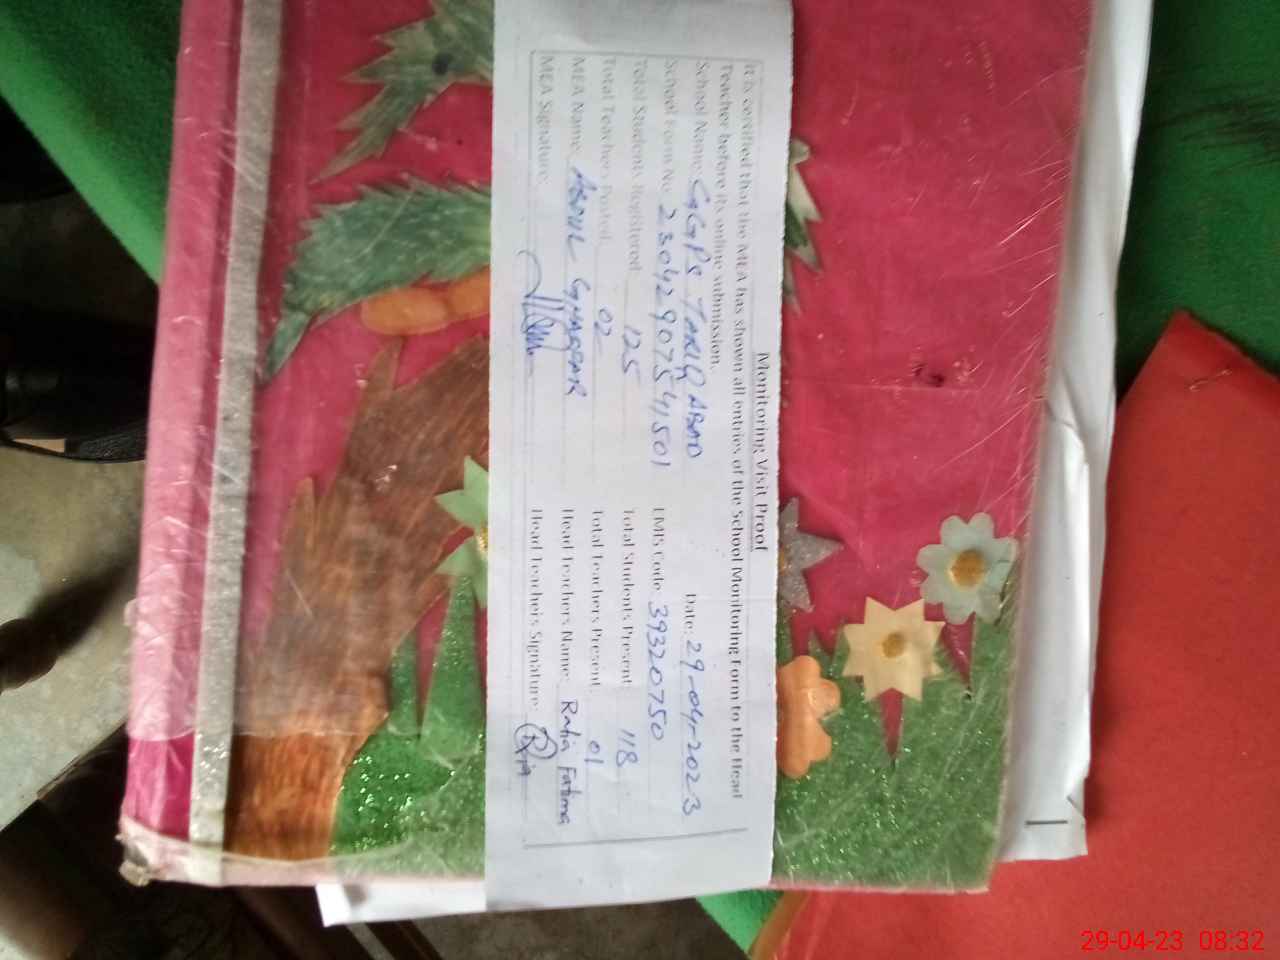 Monitoring Visit Proof
It is certified that the MEA has shown all entries of the School Monitoring Form to the Head
Teacher before its online submission.
School Name: GGPS TARIQ ABAD Date: 29-04-2023
School Form No: 230429075411501 EMIS Code: 39320750
Total Students Registered: 125 Total Students Present: 118
Total Teachers Posted: 02 Total Teachers Present: 01
MEA Name: ABDUL GHAFFAR Head Teachers Name: Rafia Fatima
MEA Signature: Head Teachers Signature:
29-04-23 08:32